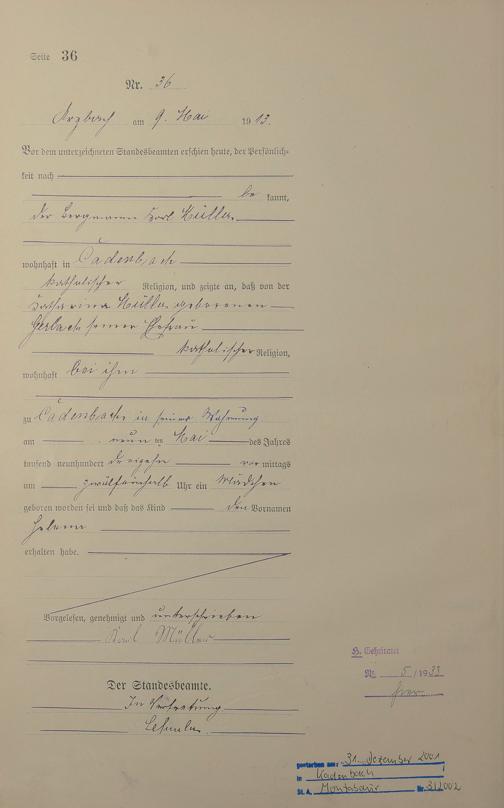 Seite 36
Nr. 36
Arzbach am 9. Mai 1913.
Vor dem unterzeichneten Standesbeamten erschien heute, der Persönlich-
keit nach
be kannt,
der Bergmann Karl Müller
wohnhaft in Cadenbach
katholischer Religion, und zeigte an, daß von der
Katharina Müller geborenen
Gerlach seiner Ehefrau
katholischer Religion,
wohnhaft bei ihm
zu Cadenbach in seiner Wohnung
am neunten Mai des Jahres
tausend neunhundert dreizehn vormittags
um Uhr ein Mädchen
geboren worden sei und daß das Kind den Vornamen
Helena
erhalten habe.
Vorgelesen, genehmigt und unterschrieben
Karl Müller
Der Standesbeamte.
In Vertretung
H. Geheiratet
Nr. 5/1933
gestorben am: 31. Dezember 2001
in Kadenbach
St. A. Montabaur Nr. 3/2002